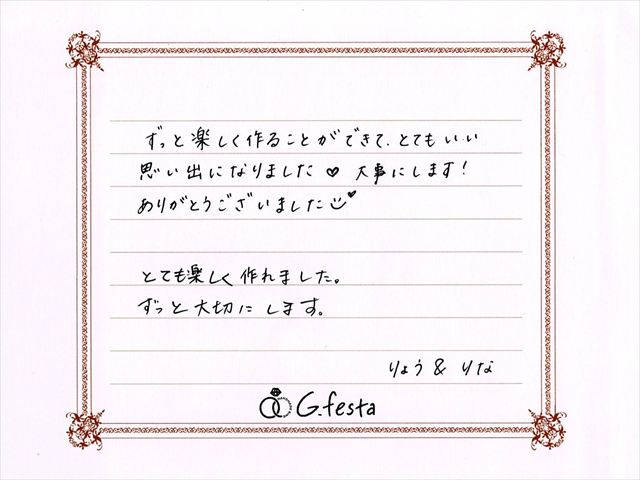 ずっと楽しく作ることができて、とてもいい
思い出になりました♡ 大事にします!
ありがとうございました
とても楽しく作れました。
ずっと大切にします。
りょう & りな
G.festa